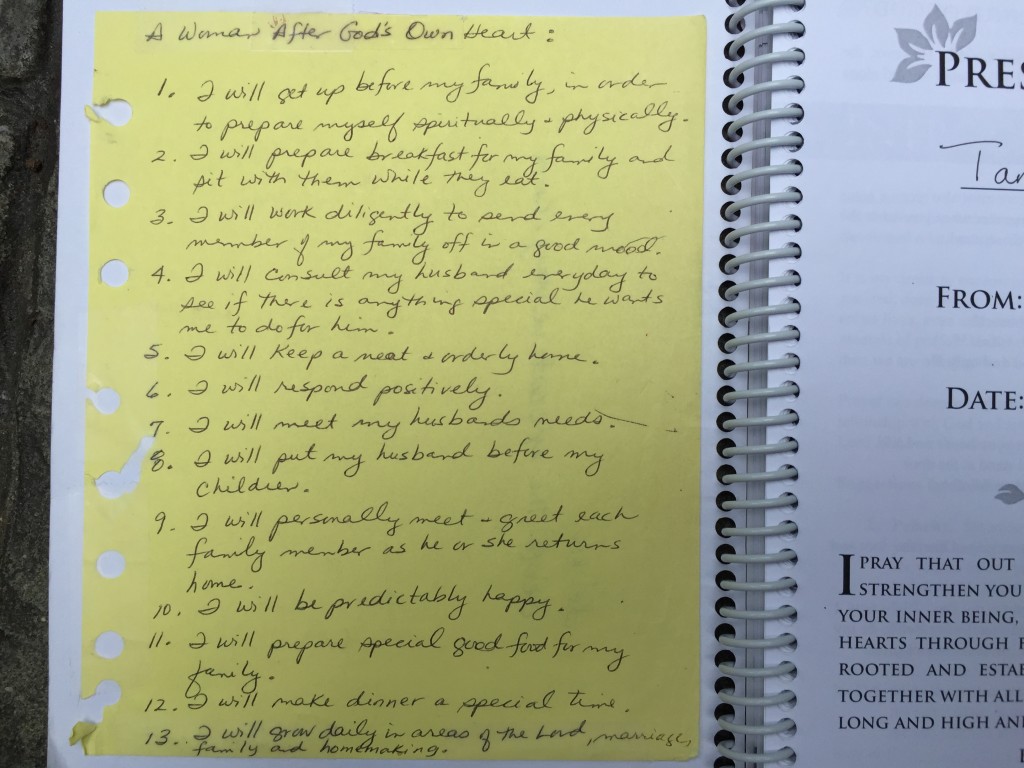 A Woman After God's Own Heart :
1. I will get up before my family, in order
to prepare myself spiritually + physically.
2. I will prepare breakfast for my family and
sit with them while they eat.
3. I will work diligently to send every
member of my family off in a good mood.
4. I will consult my husband everyday to
see if there is anything special he wants
me to do for him.
5. I will keep a neat + orderly home.
6. I will respond positively.
7. I will meet my husbands needs.
8. I will put my husband before my
children.
9. I will personally meet + greet each
family member as he or she returns
home.
10. I will be predictably happy.
11. I will prepare special good food for my
family.
12. I will make dinner a special time.
13. I will grow daily in areas of the Lord, marriage,
family and homemaking.
PRES
Tar
FROM:
DATE:
I PRAY THAT OUT
STRENGTHEN YOU
YOUR INNER BEING,
HEARTS THROUGH F
ROOTED AND ESTAB
TOGETHER WITH ALL
LONG AND HIGH AN